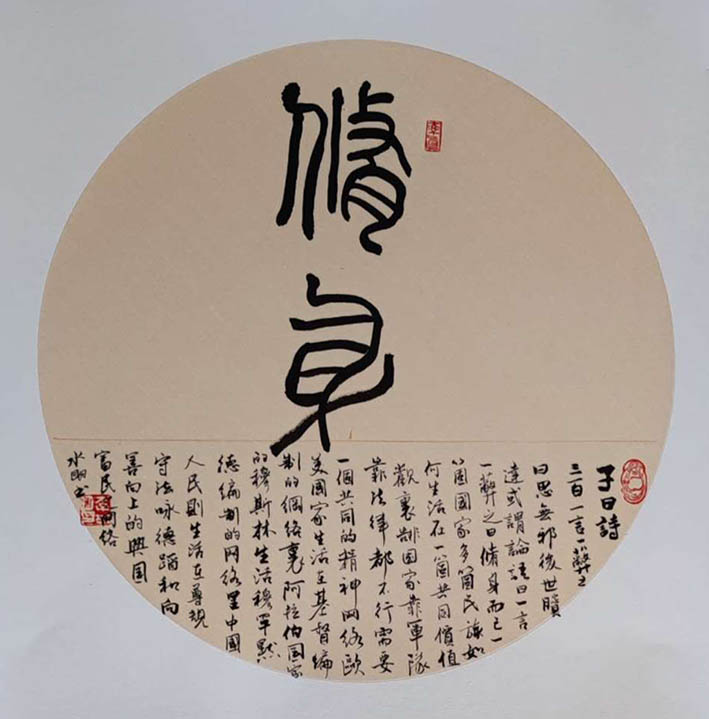 脩身
子曰詩
三百一言以蔽之
曰思無邪後世賢
達或謂論語曰一言
以蔽之曰脩身而已一
箇國家多箇民族如
何生活在一箇共同價值
觀裏諸國家靠軍隊
靠法律都不行需要
一個共同的精神网络歐
美國家生活在基督编
制的綱絡裏阿拉伯国家
的穆斯林生活穆罕默
德编制的网络里中國
人民則生活在尊規
守法咏德蹈和向
善向上的興国
富民網络
水明书